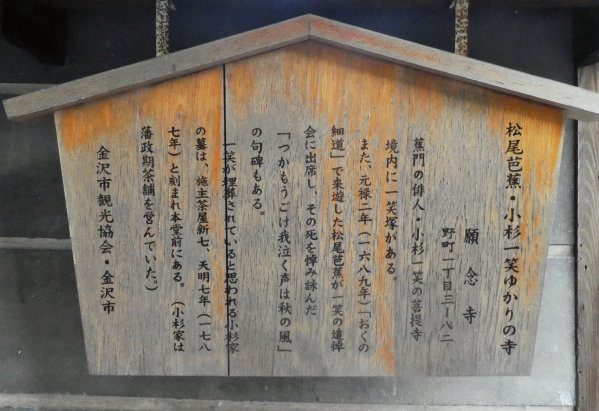 松尾芭蕉・小杉一笑ゆかりの寺
願念寺
野町一丁目三ー八二
蕉門の俳人・小杉一笑の菩提寺
境内に一笑塚がある。
また、元禄二年(一六八九年)「おくの
細道」で来遊した松尾芭蕉が一笑の追悼
会に出席し、その死を悼み詠んだ
「つかもうごけ我泣く声は秋の風」
の句碑もある。
一笑が埋葬されていると思われる小杉家
の墓は、施主茶屋新七、天明七年(一七八
七年)と刻まれ本堂前にある。(小杉家は
藩政期茶舗を営んでいた。)
金沢市観光協会・金沢市